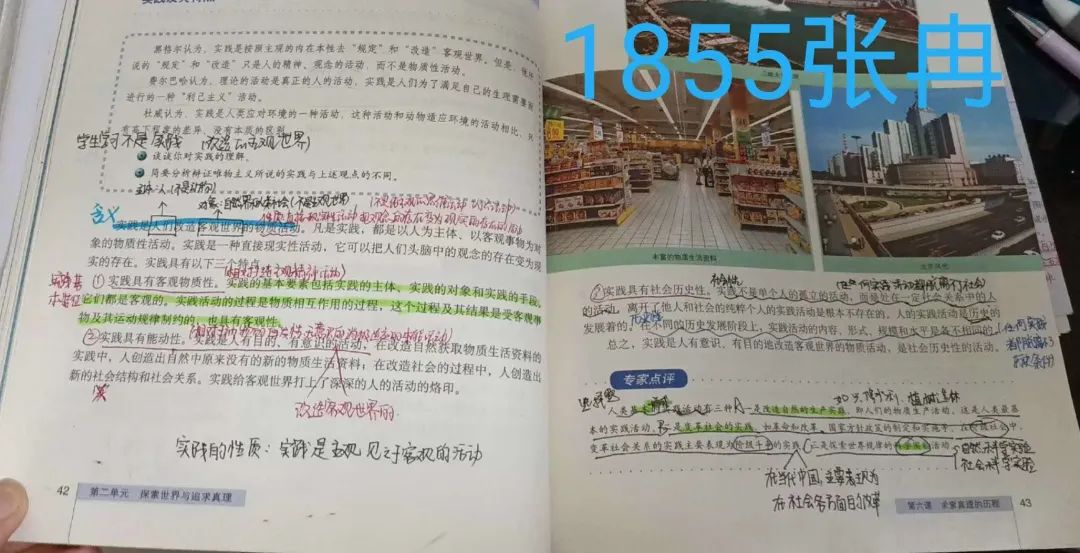 1855张冉
实践及其特点
黑格尔认为，实践是按照主观的内在本性去“规定”和“改造”客观世界。但是，他所
说的“规定”和“改造”只是人的精神、观念的活动，而不是物质性活动。
费尔巴哈认为，理论的活动是真正的人的活动，实践是人们为了满足自己的生理需要而
进行的一种“利己主义”活动。
杜威认为，实践是人类应对环境的一种活动，这种活动和动物适应环境的活动相比，只
有高下程度的差异，没有本质的区别。
学生学习不是实践 （改造主观世界）
谈谈你对实践的理解。
简要分析辩证唯物主义所说的实践与上述观点的不同。
主体：人（不是动物）
含义
实践是人们改造客观世界的物质活动。凡是实践，都是以人为主体、以客观事物为对
象的物质性活动。实践是一种直接现实性活动，它可以把人们头脑中的观念的存在变为现
实的存在。实践具有以下三个特点。
①实践具有客观物质性。实践的基本要素包括实践的主体、实践的对象和实践的手段，
它们都是客观的。实践活动的过程是物质相互作用的过程，这个过程及其结果是受客观事
物及其运动规律制约的，也具有客观性。
②实践具有能动性。实践是人有目的、有意识的活动，在改造自然获取物质生活资料的
实践中，人创造出自然中原来没有的新的物质生活资料；在改造社会的过程中，人创造出
新的社会结构和社会关系。实践给客观世界打上了深深的人的活动的烙印。
改造客观世界的
实践的性质：实践是主观见之于客观的活动
42 第二单元 探索世界与追求真理
丰富的物质生活资料
北京风光
社会性
③实践具有社会历史性。实践不是单个人的孤立的活动，而是处在一定社会关系中的人
的活动。离开了他人和社会的纯粹个人的实践活动是根本不存在的。人的实践活动是历史的
发展着的，在不同的历史发展阶段上，实践活动的内容、形式、规模和水平是各不相同的。
总之，实践是人有意识、有目的地改造客观世界的物质活动，是社会历史性的活动。
任何实践
专家点评
选择题
人类基本的实践活动有三种：一是改造自然的生产实践，即人们的物质生产活动，这是人类最基
本的实践活动。二是变革社会的实践，如革命和改革、国家方针政策的制定和实施等。在阶级社会中，
变革社会关系的实践主要表现为阶级斗争的实践。三是探索世界规律的科学实验活动。
自然科学实验
社会科学实验
在当代中国，主要表现为
在社会各方面的改革
第六课 求索真理的历程 43